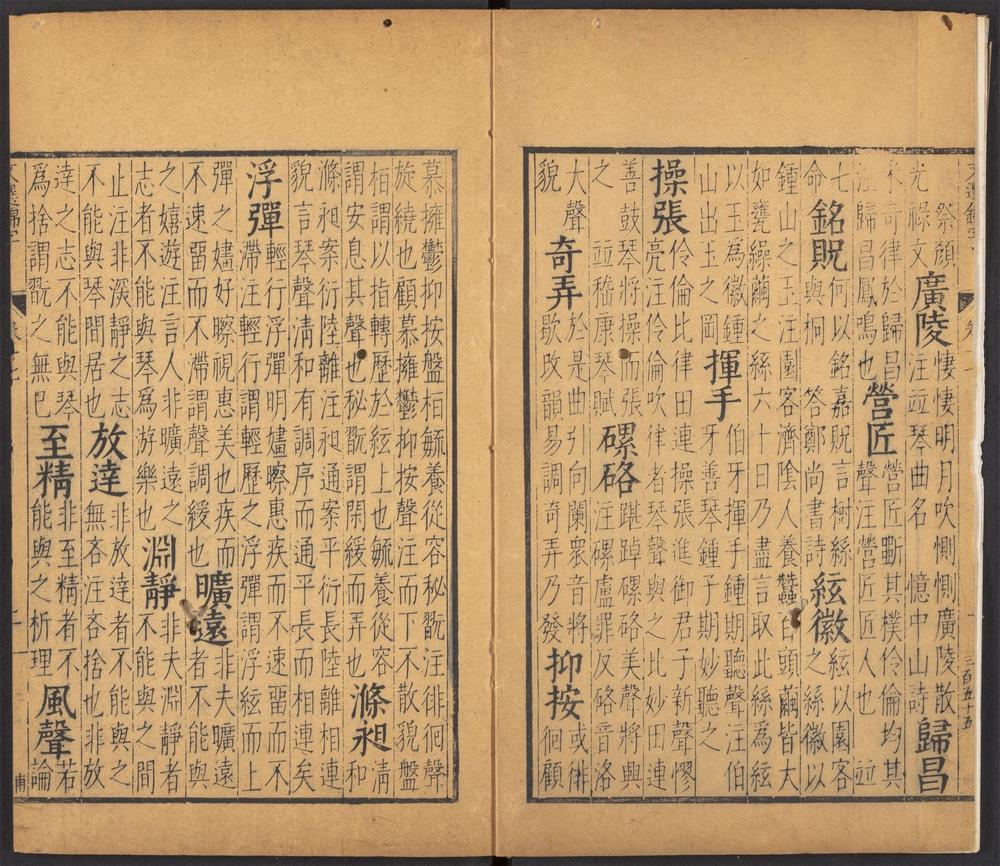 祭顏 廣陵 悽悽明月吹惻惻廣陵散 歸昌
光祿文 注並琴曲名 憶中山詩
采奇律於歸昌 營匠 營匠斲其樸伶倫均其
注歸昌鳳鳴也 聲注營匠匠人也 並
七 銘貺 何以銘嘉貺言樹絲 絃徽 絃以園客
命 與桐 答鄭尚書詩 之絲徽以
鍾山之玉注園客濟陰人養蠶白頭繭皆大
如甕繰繭之絲六十日乃盡言取此絲為絃
以玉為徽鍾 揮手 伯牙揮手鍾期聽聲注伯
山出玉之岡 牙善琴鍾子期妙聽之
操張 伶倫比律田連操張進御君子新聲憀
亮注伶倫吹律者琴聲與之比妙田連
善鼓琴將操而張 磥硌 踸踔磥硌美聲將興
之 並嵇康琴賦 注磥盧罪反硌音洛
大聲 奇弄 於是曲引向闌衆音將 抑按 或徘
貌 歇改韻易調奇弄乃發 徊顧
三百五十五
慕擁鬱抑按盤桓毓養從容秘翫注徘徊聲
旋繞也顧慕擁鬱抑按聲注而下不散貌盤
桓謂以指轉歷於絃上也毓養從容清
謂安息其聲也秘翫謂閑緩而弄也 滌昶 和
滌昶案衍陸離注昶通案平衍長陸離相連
貌言琴聲清和有調序而通平長而相連矣
浮彈 輕行浮彈明嫿𥌠惠疾而不速留而不
滯注輕行謂輕歷之浮彈謂浮絃而上
彈之嫿好𥌠視惠美也疾而 曠遠 非夫曠遠
不速留而不滯謂聲調緩也 者不能與
之嬉遊注言人非曠遠之 淵靜 非夫淵靜者
志者不能與琴為游樂也 不能與之間
止注非深靜之志 放達 非放達者不能與之
不能與琴間居也 無吝注吝捨也非放
達之志不能與琴 至精 非至精者不 風聲 若
為捨謂翫之無已 能與之析理 論